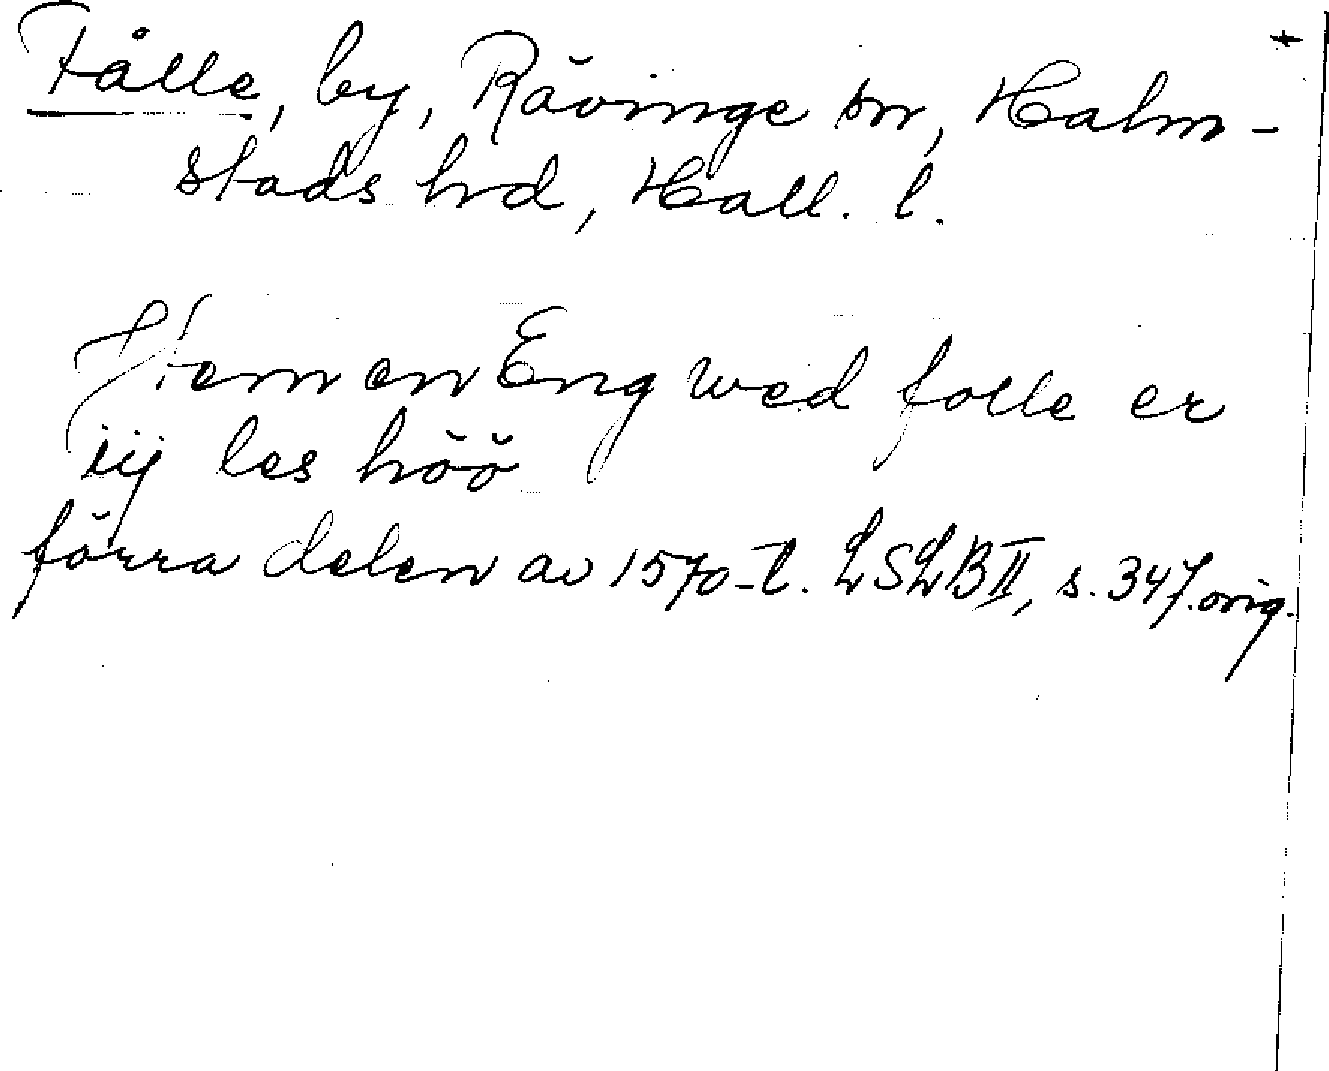 Fålle, by, Rävinge sn, Halm-
stads hrd, Hall. l.
Item en Eng wed folle er
iij les höö
förra delen av 1570-t. LSLB II, s. 347. orig.